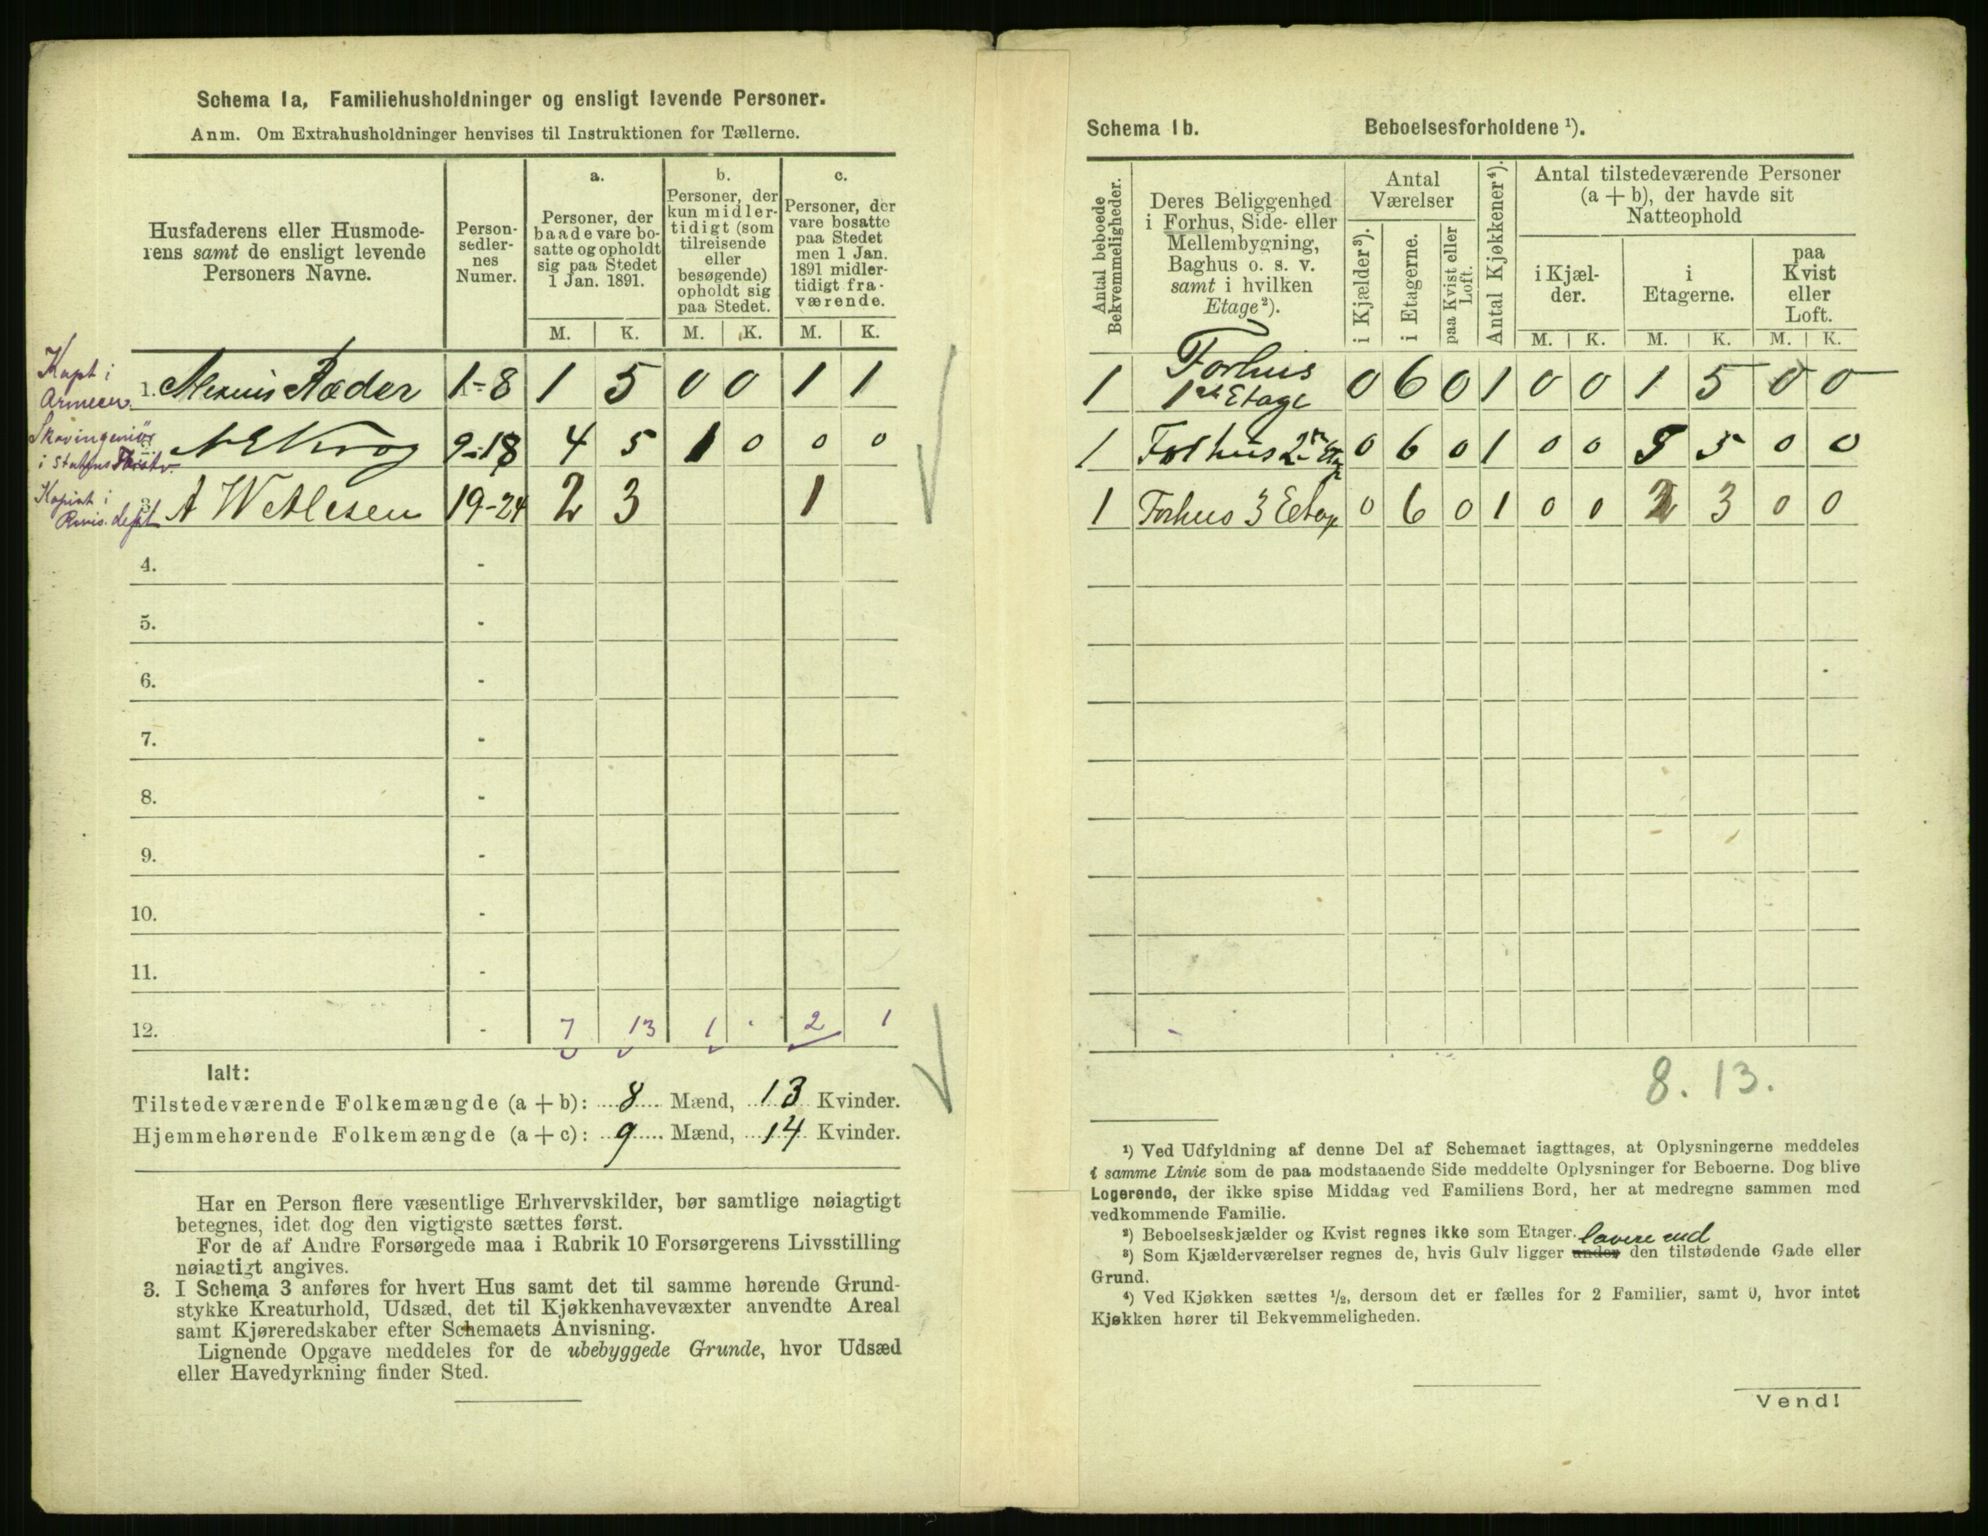 Schema 1a, Familiehusholdninger og ensligt levende Personer.
Anm. Om Extrahusholdninger henvises til Instruktionen for Tællerne.
Husfaderens eller Husmode-
rens samt de ensligt levende
Personers Navne.
Person-
sedler-
nes
Numer.
a.
Personer, der
baade vare bo-
satte og opholdt
sig paa Stedet
1 Jan. 1891.
b.
Personer, der
kun midler-
tidigt (som
tilreisende
eller
besøgende)
opholdt sig
paa Stedet.
c.
Personer, der
vare bosatte
paa Stedet
men 1 Jan.
1891 midler-
tidigt fra-
værende.
M. K. M. K. M. K.
Kapt i
Armeen
1. Ræder 1-8 1 5 0 0 1 1
Skovingeniør
i Statens
N E Krog 9-18 4 5 1 0 0 0
Kopist i
Revis. dept
3. A Wetlesen 19-24 2 3 1
4. -
5. -
6. -
7. -
8. -
9. -
10. -
11. -
12. - 7 13 1 . 2 1
Ialt:
Tilstedeværende Folkemængde (a + b): 8 Mænd, 13 Kvinder.
Hjemmehørende Folkemængde (a + c): 9 Mænd, 14 Kvinder.
Har en Person flere væsentlige Erhvervskilder, bør samtlige nøiagtigt
betegnes, idet dog den vigtigste sættes først.
For de af Andre Forsørgede maa i Rubrik 10 Forsørgerens Livsstilling
nøiagtigt angives.
3. I Schema 3 anføres for hvert Hus samt det til samme hørende Grund-
stykke Kreaturhold, Udsæd, det til Kjøkkenhavevæxter anvendte Areal
samt Kjøreredskaber efter Schemaets Anvisning.
Lignende Opgave meddeles for de ubebyggede Grunde, hvor Udsæd
eller Havedyrkning finder Sted.
Schema 1b. Beboelsesforholdene ¹).
Antal beboede
Bekvemmeligheder.
Deres Beliggenhed
i Forhus, Side- eller
Mellembygning,
Baghus o. s. v.
samt i hvilken
Etage²).
Antal
Værelser
i Kjælder³).
i Etagerne.
paa Kvist eller
Loft.
Antal Kjøkkener⁴).
Antal tilstedeværende Personer
(a + b), der havde sit
Natteophold
i Kjæl-
der.
i
Etagerne.
paa
Kvist
eller
Loft.
M. K. M. K. M. K.
1 Forhus
1ste Etage 0 6 0 1 0 0 1 5 0 0
1 Forhus 2 Etage 0 6 0 1 0 0 5 5 0 0
1 Forhus 3 Etage 0 6 0 1 0 0 2 3 0 0
8. 13.
¹) Ved Udfyldning af denne Del af Schemaet iagttages, at Oplysningerne meddeles
i samme Linie som de paa modstaaende Side meddelte Oplysninger for Beboerne. Dog blive
Logerende, der ikke spise Middag ved Familiens Bord, her at medregne sammen med
vedkommende Familie.
²) Beboelseskjælder og Kvist regnes ikke som Etager.
lavere end
³) Som Kjælderværelser regnes de, hvis Gulv ligger under den tilstødende Gade eller
Grund.
⁴) Ved Kjøkken sættes ½, dersom det er fælles for 2 Familier, samt 0, hvor intet
Kjøkken hører til Bekvemmeligheden.
Vend!